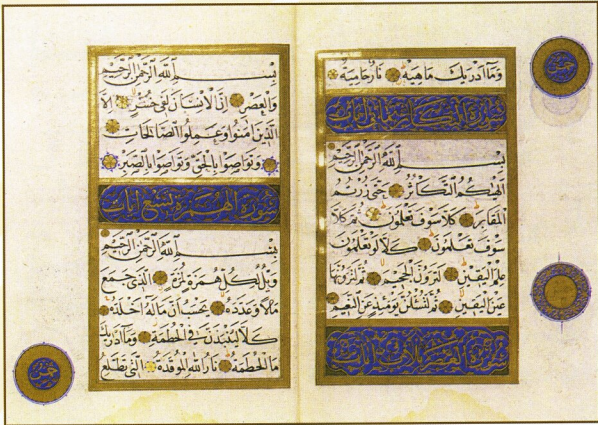 وَمَا اَدْرٰیكَ مَاهِيَهْ نَارٌ حَامِيَةٌ
سورة التكاثر ثماني ايات
بِسْمِ اللّٰهِ الرَّحْمٰنِ الرَّحِيمِ
اَلْهٰیكُمُ التَّكَاثُرُ حَتّٰى زُرْتُمُ
الْمَقَابِرَ كَلَّا سَوْفَ تَعْلَمُونَ ثُمَّ كَلَّا
سَوْفَ تَعْلَمُونَ كَلَّا لَوْ تَعْلَمُونَ
عِلْمَ الْيَقِينِ لَتَرَوُنَّ الْجَحِيمَ ثُمَّ لَتَرَوُنَّهَا
عَيْنَ الْيَقِينِ ثُمَّ لَتُسْئَلُنَّ يَوْمَئِذٍ عَنِ النَّعِيمِ
سورة العصر ثلاث ايات
بِسْمِ اللّٰهِ الرَّحْمٰنِ الرَّحِيمِ
وَالْعَصْرِ اِنَّ الْاِنْسَانَ لَفِي خُسْرٍ اِلَّا
الَّذِينَ اٰمَنُوا وَعَمِلُوا الصَّالِحَاتِ
وَتَوَاصَوْا بِالْحَقِّ وَتَوَاصَوْا بِالصَّبْرِ
سورة الهمزة تسع ايات
بِسْمِ اللّٰهِ الرَّحْمٰنِ الرَّحِيمِ
وَيْلٌ لِكُلِّ هُمَزَةٍ لُمَزَةٍ اَلَّذِي جَمَعَ
مَالًا وَعَدَّدَهُ يَحْسَبُ اَنَّ مَالَهُ اَخْلَدَهُ
كَلَّا لَيُنْبَذَنَّ فِي الْحُطَمَةِ وَمَا اَدْرٰیكَ
مَا الْحُطَمَةُ نَارُ اللّٰهِ الْمُوقَدَةُ اَلَّتِي تَطَّلِعُ